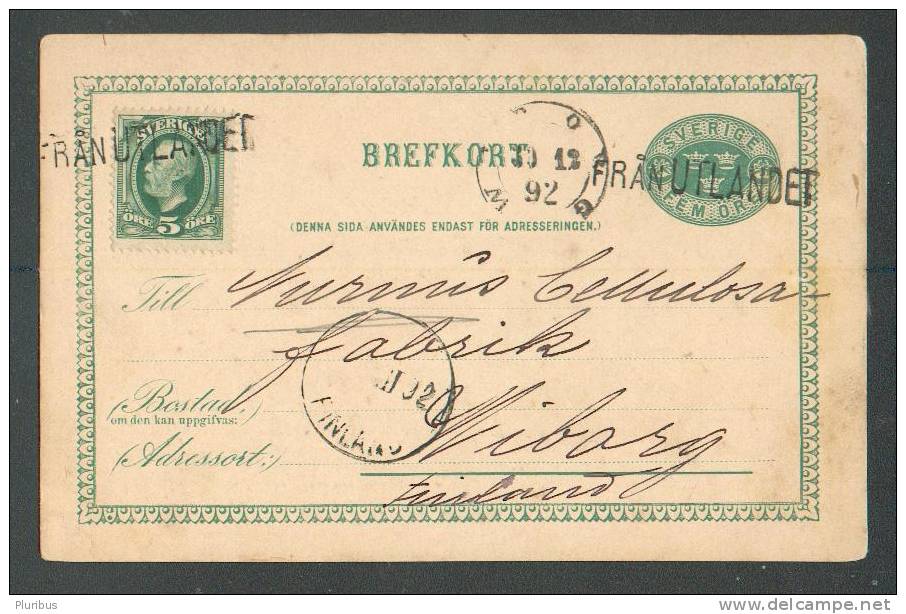 SVERIGE
FRÅN UTLANDET
ÖRE 5 ÖRE
BREFKORT
30 12
92
SVERIGE
FRÅN UTLANDET
FEM ÖRE
(DENNA SIDA ANVÄNDES ENDAST FÖR ADRESSERINGEN.)
Till Nurmis Cellulosa-
fabrik
(Bostad,
om den kan uppgifvas:)
Wiborg
(Adressort:)
Finland
92
FINLAND
Pluribus
www.delcampe.net